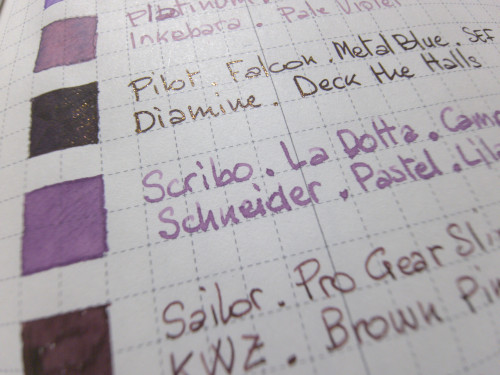 Platinum.
Inkebara. Pale Violet
Pilot. Falcon. Metal Blue. SEF
Diamine. Deck the Halls
Scribo. La Dotta.
Schneider. Pastel.
Sailor. Pro Gear
KWZ. Brown